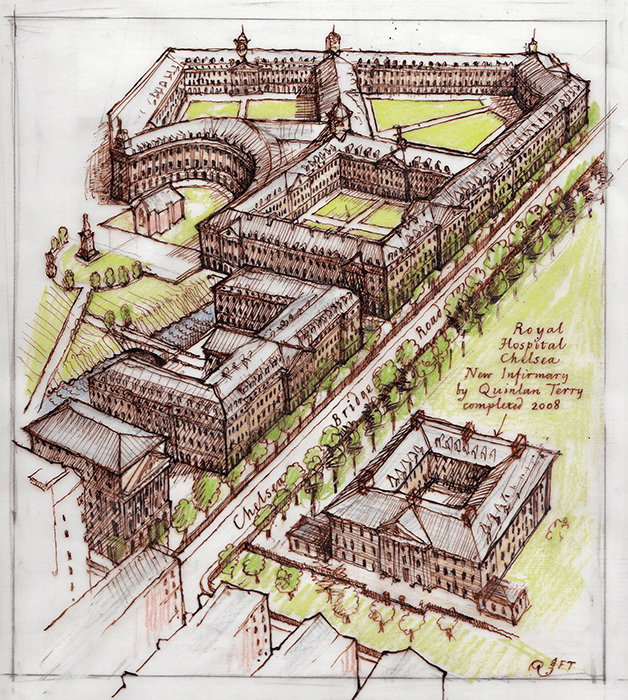 Royal
Hospital
Chelsea
New Infirmary
by Quinlan Terry
completed 2008
Chelsea Bridge Road